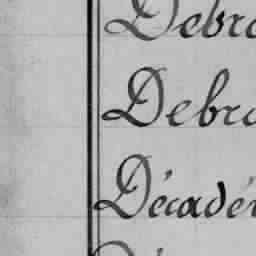 Debra
Debra
Décadé